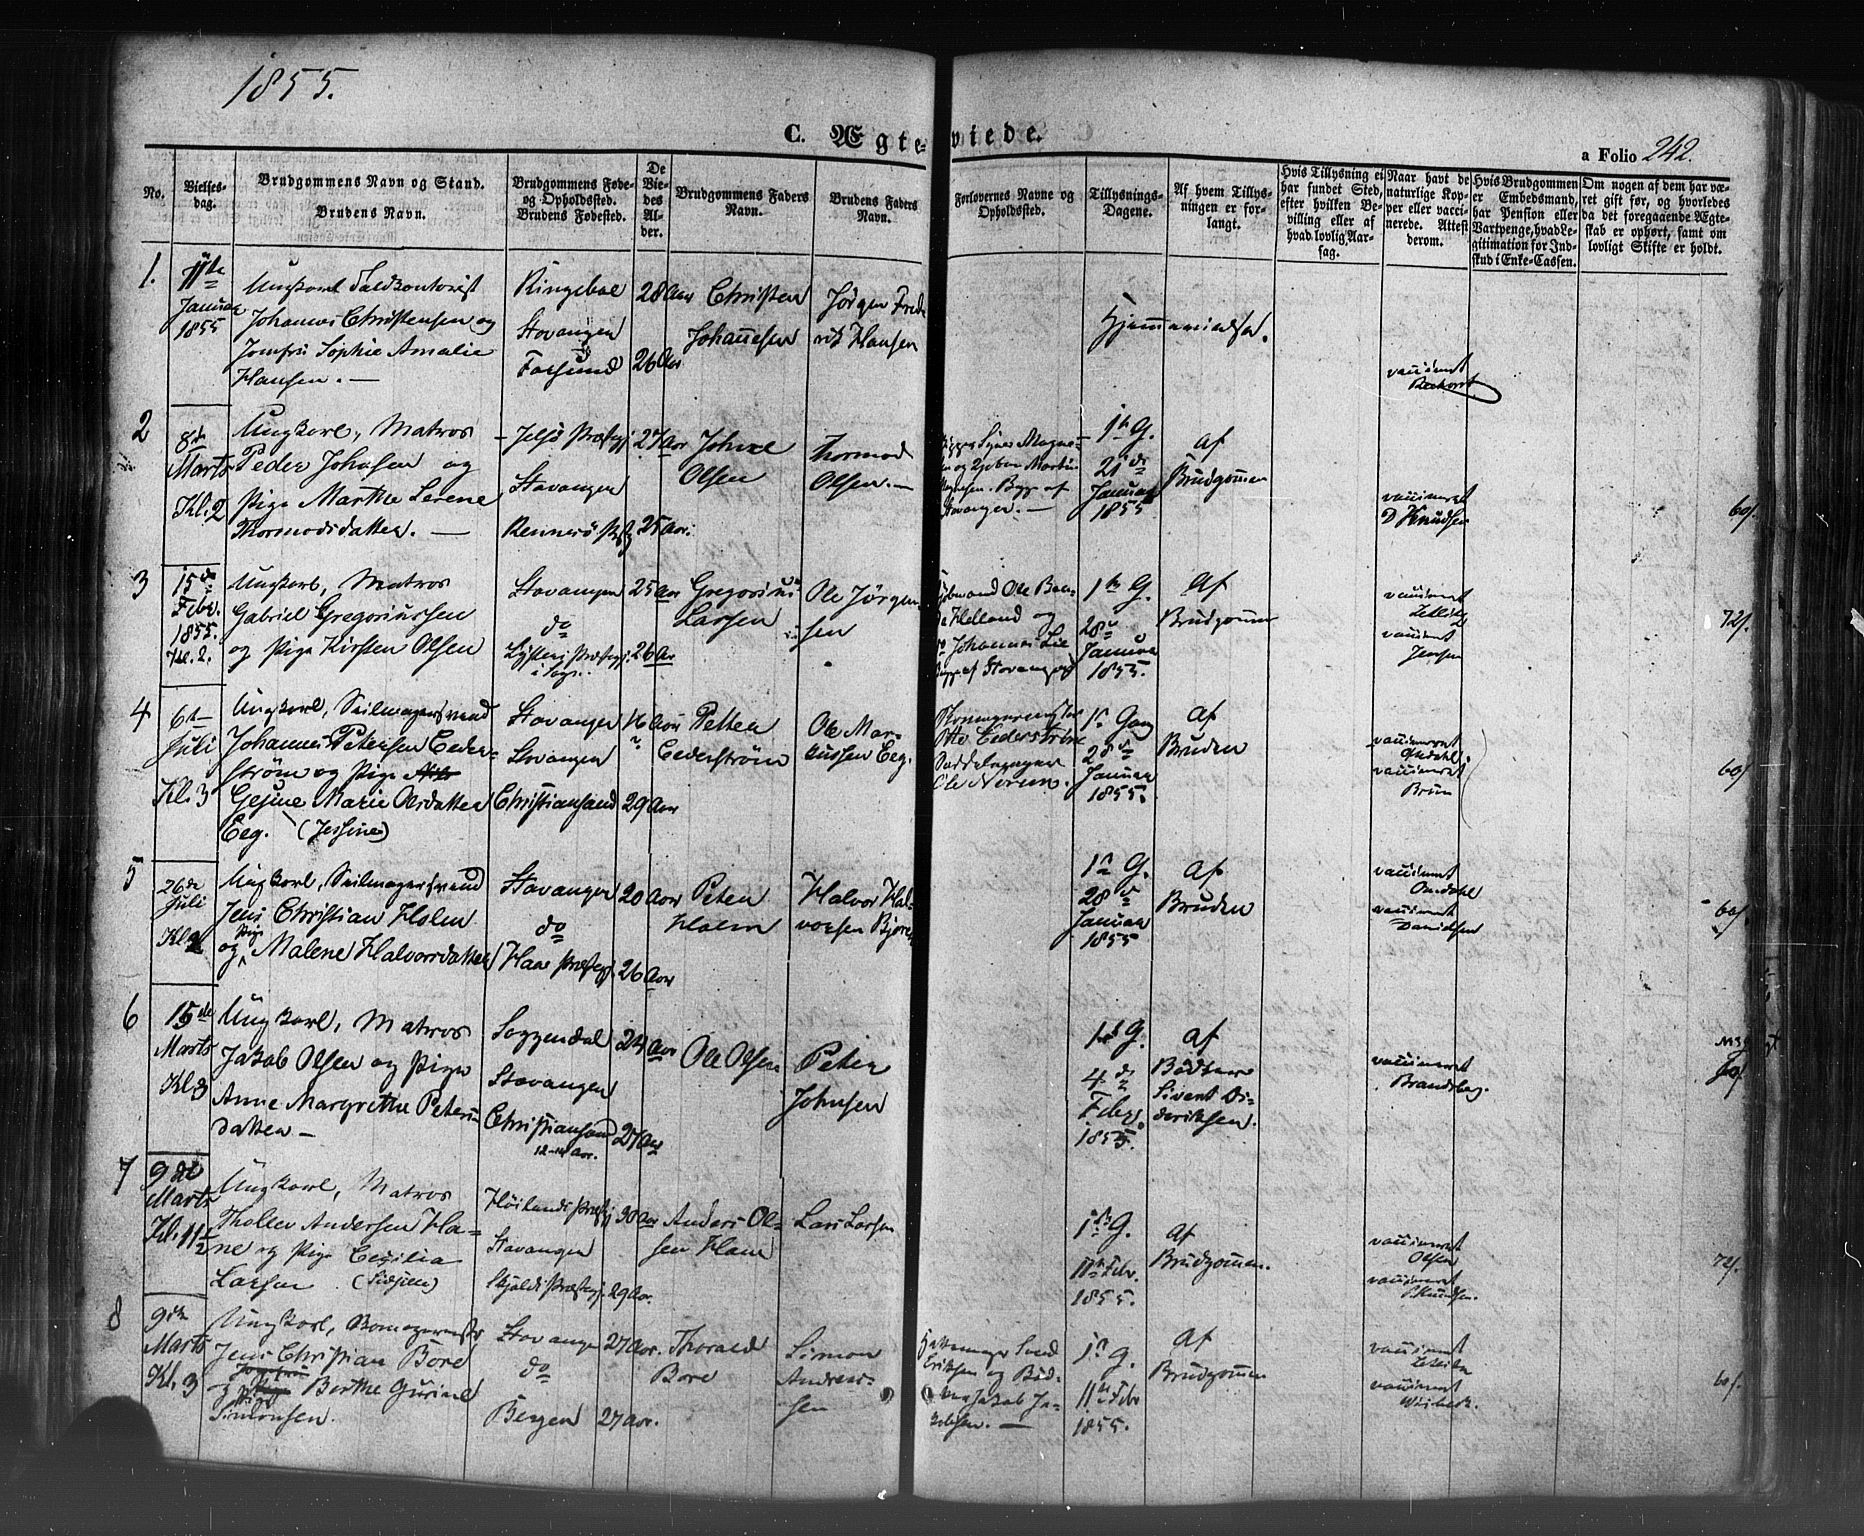 1855.
C. Ægteviede.
a Folio 242.
No.
Vielses-
dag.
Brudgommens Navn og Stand.
Brudens Navn.
Brudgommens Føde-
og Opholdssted.
Brudens Fødested.
De
Vie-
des
Al-
der.
Brudgommens Faders
Navn.
Brudens Faders
Navn.
Forlovernes Navne og
Opholdssted.
Tillysnings-
Dagene.
Af hvem Tillys-
ningen er for-
langt.
Hvis Tillysning ei
har fundet Sted,
efter hvilken Be-
villing eller af
hvad lovlig Aar-
sag.
Naar havt de
naturlige Kop-
per eller vacci-
nerede. Attest
derom.
Hvis Brudgommen
er Embedsmand,
har Pension eller
Vartpenge, hvad Le-
gitimation for Ind-
skud i Enke-Cassen.
Om nogen af dem har væ-
ret gift før, og hvorledes
da det foregaaende Ægte-
skab er ophørt, samt om
lovligt Skifte er holdt.
1.
11te
Januar
1855
Ungkarl
Johannes Christensen og
Jomfru Sophie Amalie
Hansen. —
Stavanger
Farsund
28 Aar
26 Aar
Christen
Johannesen
Jørgen Frede
rik Hansen
2
8de
Marts
Kl. 2
Ungkarl, Matros
Peder Johnsen og
Pige Marthe Serene
Thormodsdatter. —
Jelsø Præstegj.
Stavanger
Rennesø Præstgj
27 Aar
25 Aar.
Johne
Olsen
Thormod
Olsen. —
Stavanger. —
1ste G.
21de
Januar
1855
Af
Brudgommen
vaccineret
D Knudsen
60/.
3
15de
Febr.
1855.
Kl. 2.
Ungkarl, Matros
Gabriel Gregoriussen
og Pige Kirsten Olsen
Stavanger
do
Lyster Præstegj.
i Sogn.
25 Aar
26 Aar
Gregorius
Larsen
Ole Jørgen-
sen
Helland og
Johannes Lie
af Stavanger
1ste G.
28de
Januar
1855.
Af
Brudgommen
vaccineret
Zetlitz
vaccineret
Jensen
72/.
4
6te
Juli
Kl. 3
Ungkarl, Seilmagersvend
Johannes Petersen Ceder-
strøm og Pige
Gesine Marie Olsdatter
Eeg. (Jessine)
Stavanger
Stavanger
Christiansand
29 Aar
Petter
Cederstrøm
Ole Mar-
kussen Eeg.
Otto Cederstrøm
Ole Norem.
1ste Gang
28de
Januar
1855.
Af
Bruden
vaccineret
Omdahl
vaccineret
Brun
60/.
5
26de
Juli
Ungkarl, Seilmagersvend
Jens Christian Holm
og Pige Malene Halvorsdatter
Stavanger
do
Haae Præstegj
20 Aar
26 Aar
Peter
Holm
Halvor Hal-
vorsen
1ste G.
28de
Januar
1855
Af
Bruden
vaccineret
Omdahl
vaccineret
Danielsen
60/.
6
15de
Marts
Kl. 3
Ungkarl, Matros
Jakob Olsen og Pige
Anne Margrethe Peters-
datter —
Soggendal
Stavanger
Christiansand
12–14 Aar.
24 Aar
27 Aar
Ole Olsen
Peter
Johnsen
1ste G.
4de
Febr.
1855.
Af
Sivert Di-
deriksen.
vaccineret
Brandsberg.
7
9de
Marts
Kl. 11½
Ungkarl, Matros
Tollev Andersen Ha-
ne og Pige Cecilia
Larsen
Høilands Præstgj
Stavanger
Skjolds Præstegj.
30 Aar
29 Aar.
Anders Ol-
sen Hane
Lars Larsen
1ste G.
11te Febr.
1855.
Af
Brudgommen.
vaccineret
Olsen
vaccineret
Knudsen.
72/.
8
9de
Marts
Kl. 3
Ungkarl,
Jens Christian Bore
Jomfru
Berthe Gurine
Simonsen.
Stavanger
do
Bergen
27 Aar.
27 Aar.
Thorvald
Bore
Simon
Andrea-
sen
Eriksen og
Jakob Ja-
kobsen. —
1ste G.
11te Febr
1855.
Af
Brudgommen
vaccineret
Zetlitz
vaccineret
60/.